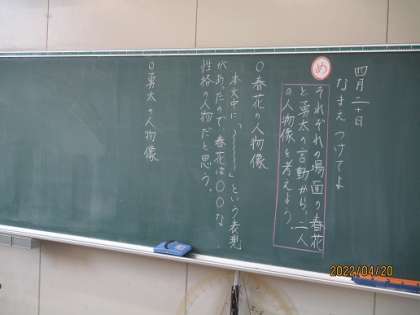 四月二十日
なまえつけてよ
め
それぞれの場面の春花
と勇太の言動から、二人
の人物像を考えよう。
○春花の人物像
本文中に「〰〰〰」という表現
があったので、春花は○○な
性格の人物だと思う。
○勇太の人物像
2022/04/20